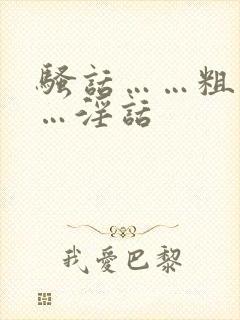 騷話……粗
…淫話
我愛巴黎